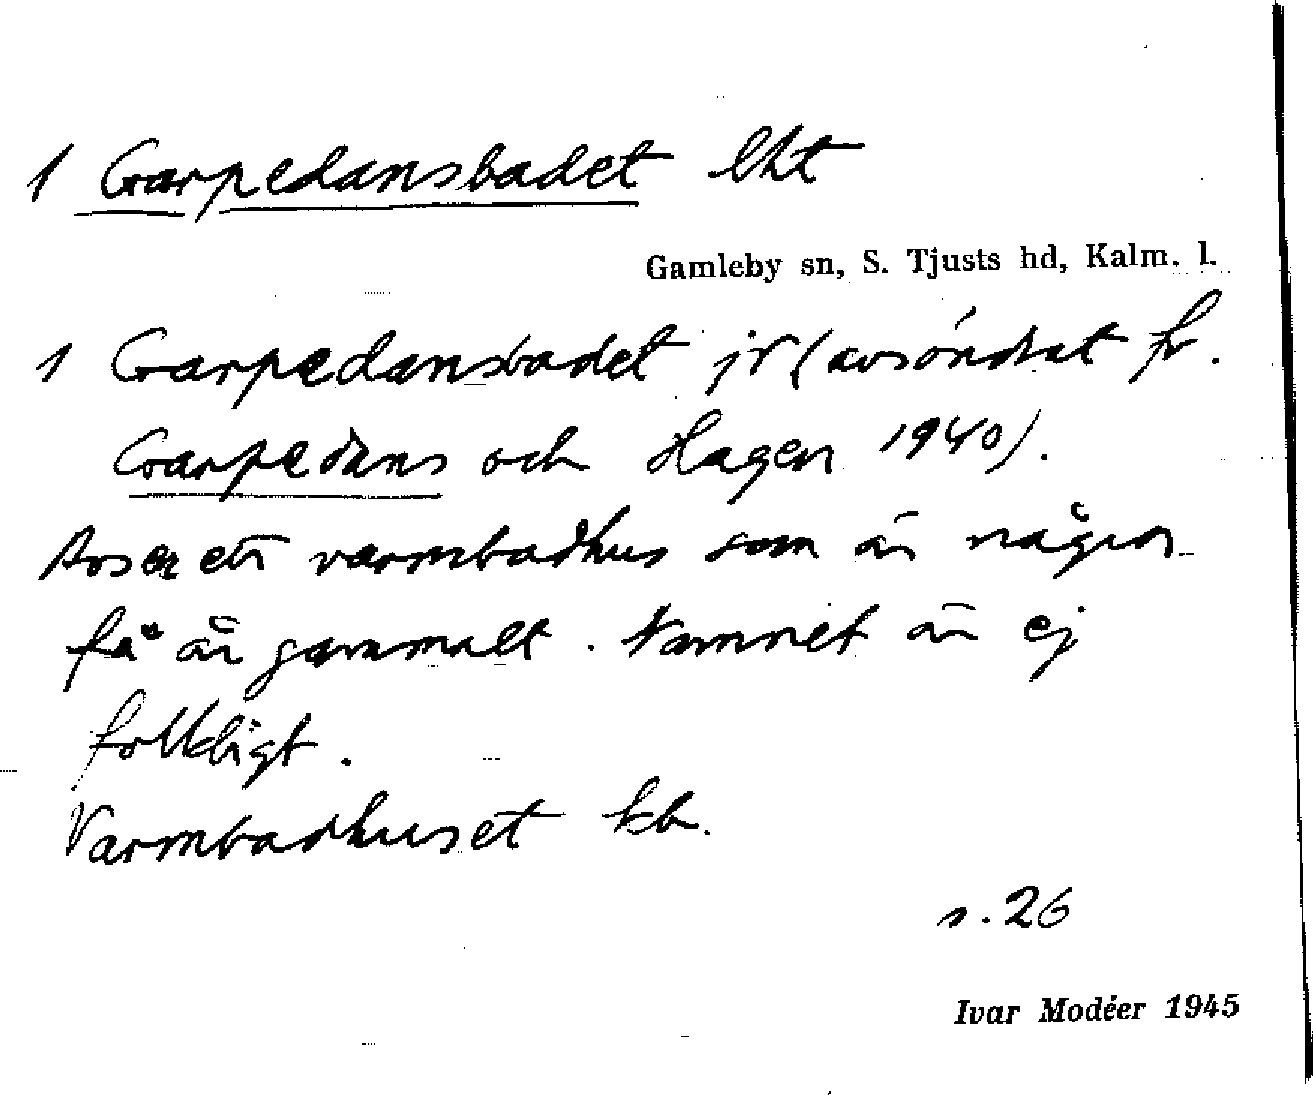 1 Garpedansbadet lht
Gamleby sn, S. Tjusts hd, Kalm. l.
1 Garpedansbadet jr (avsöndrat fr.
Garpedans och Hagen 1940).
Avser ett varmbadhus som är några
få år gammalt. Namnet är ej
folkligt.
Varmbadhuset kb.
s. 26
Ivar Modéer 1945